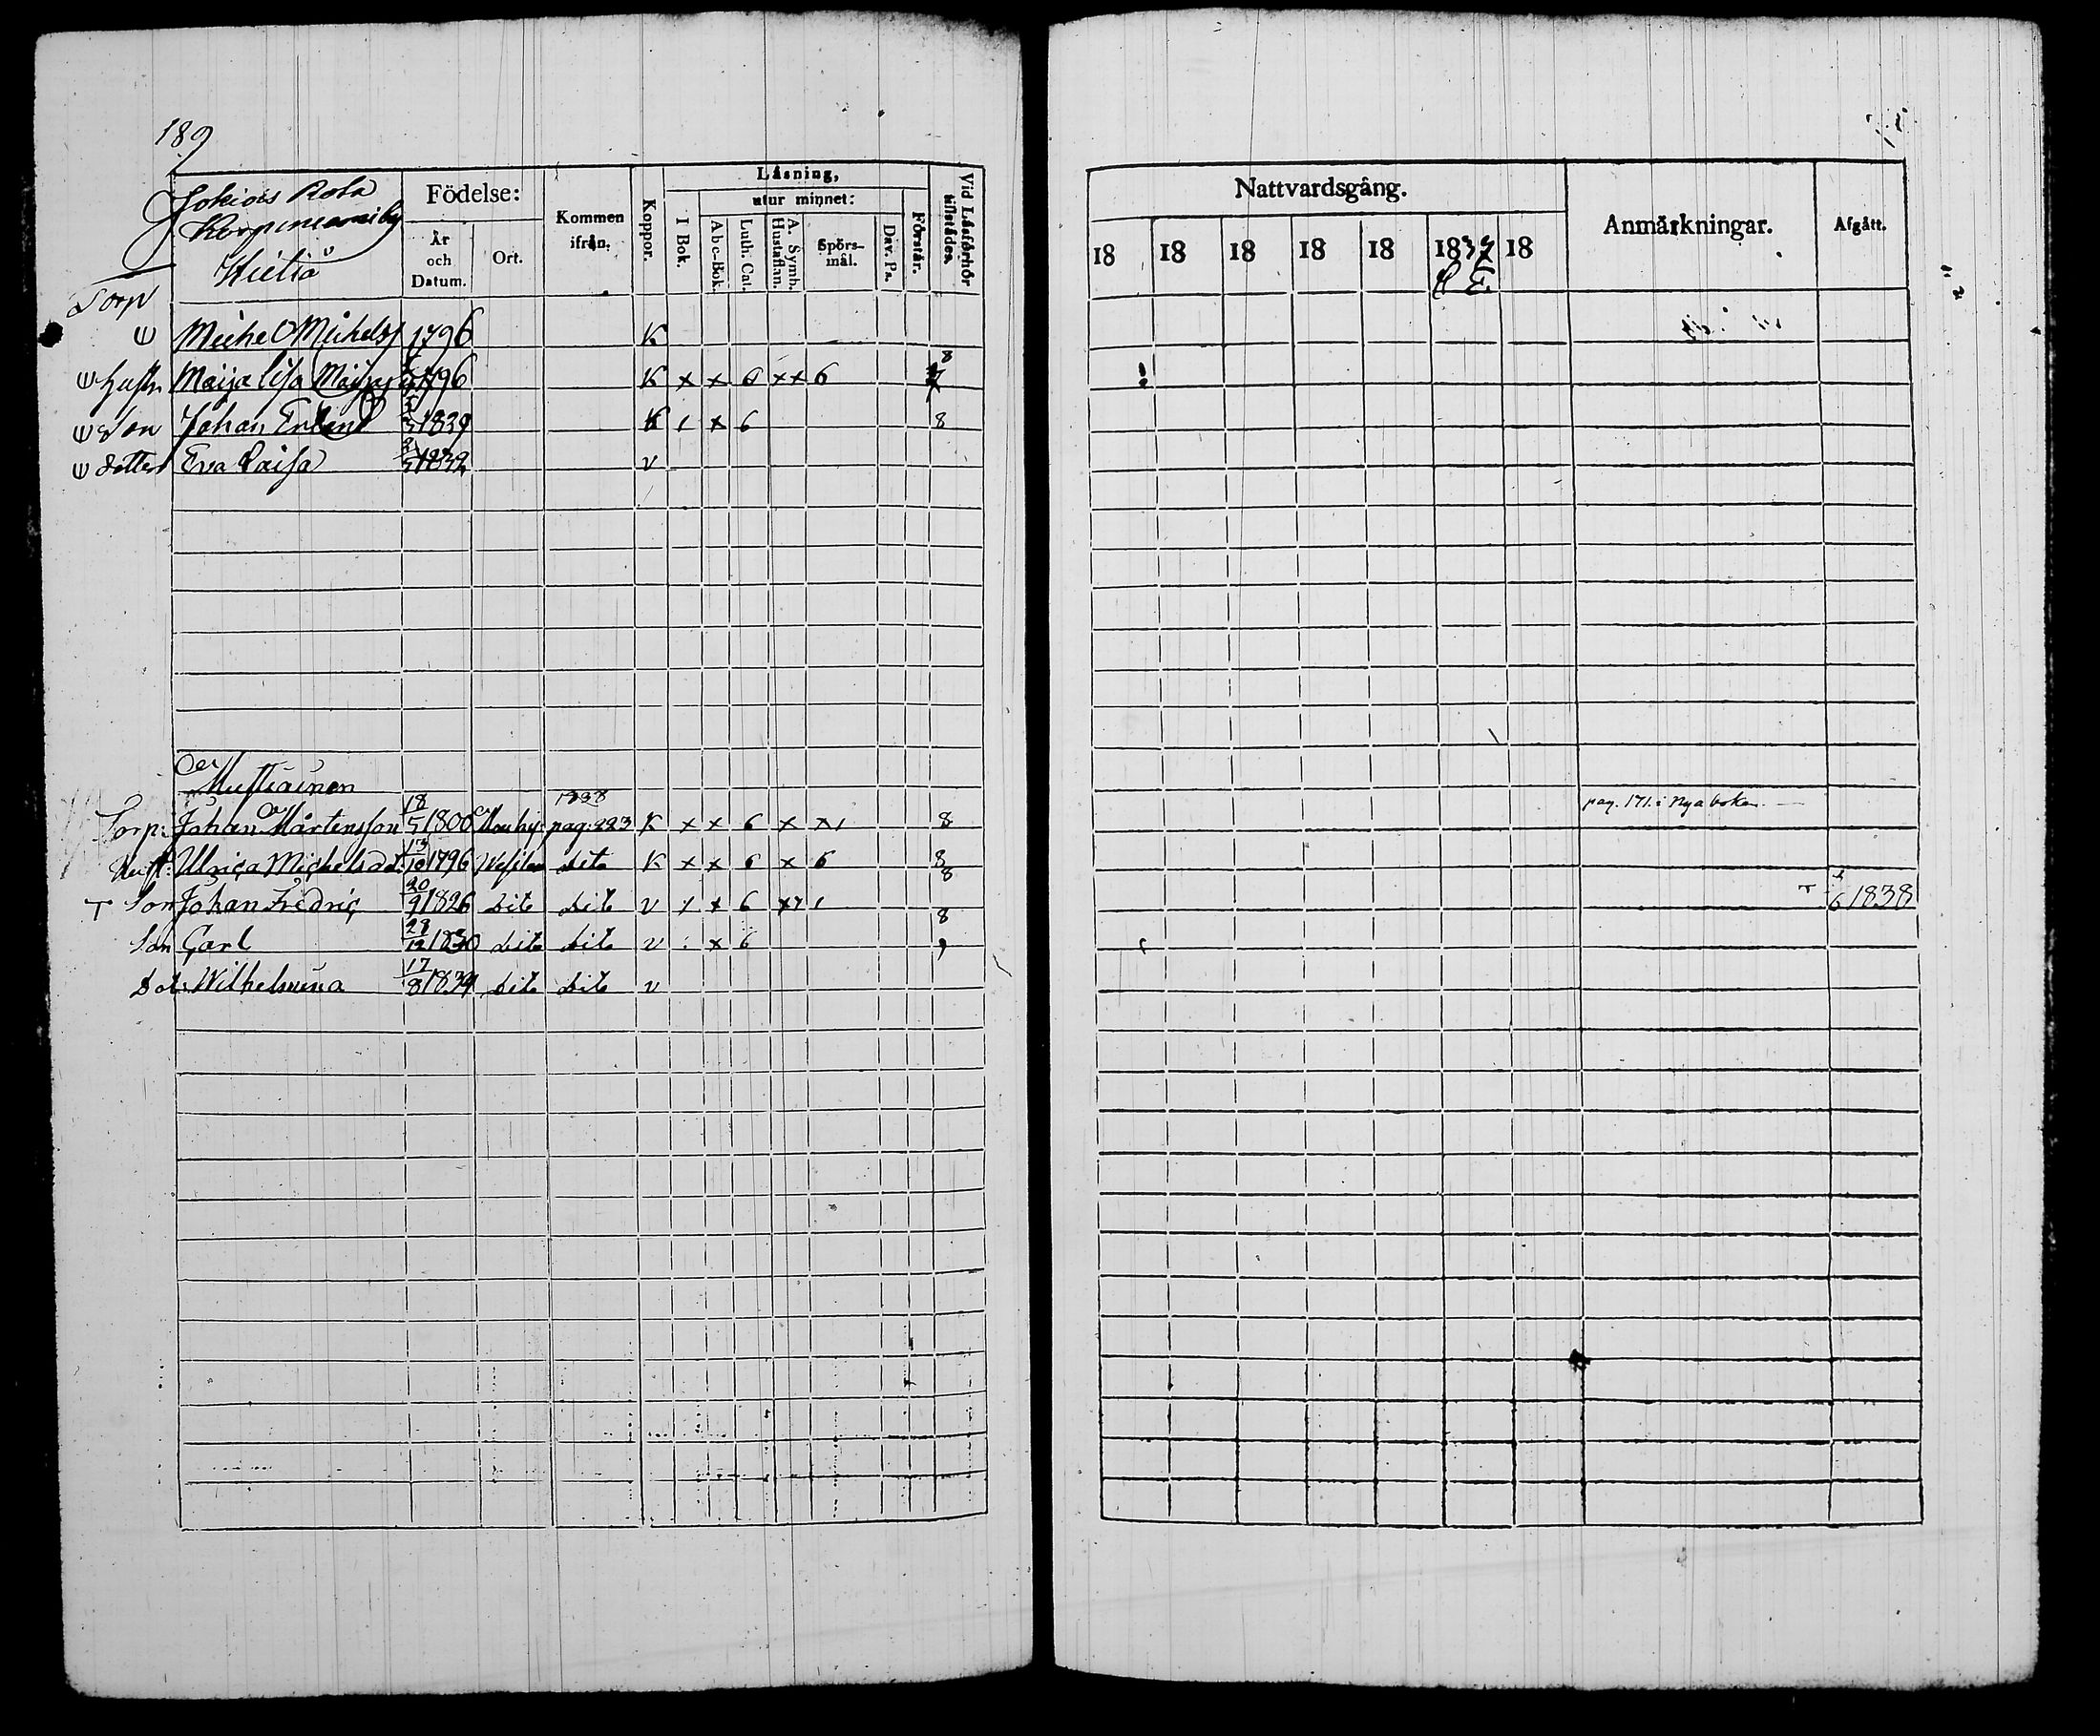 189
Jokiois Rota
Födelse:
Kommen ifrån.
Koppor.
Läsning,
utur minnet:
I Bok.
Abc-Bok.
Luth. Cat.
A. Symb. Hustaflan.
Spörs-mål.
Dav. Ps.
Förstår.
Vid Läsförhör tillstädes.
År och Datum.
Ort.
Nattvardsgång.
18 18 18 18 18 1837 18
Anmärkningar.
Afgått.
Torp
Michel Michelss 1796 K
Hustr. Maija Lisa 1796 K x x 6 x x 6 8
Son Johan Erland 1839 K 1 x 6 8
Dotter Eva Caisa v
Mustiainen
1838
pag. 171. i Nya boken
Torp: Johan Mårtensson 18/5 1800 pag: 223 K x x 6 x x 1 8
Hust: Ulrica Michelsdt: 13/10 1796 dito K x x 6 x 6 8
T Son Johan Fredric 20/9 1826 dito dito v 1 x 6 x 7 1 8 T 6 1838
Son Carl 28/12 1830 dito dito v x 6 8
Dot: Wilhelmina 17/8 1834 dito dito v